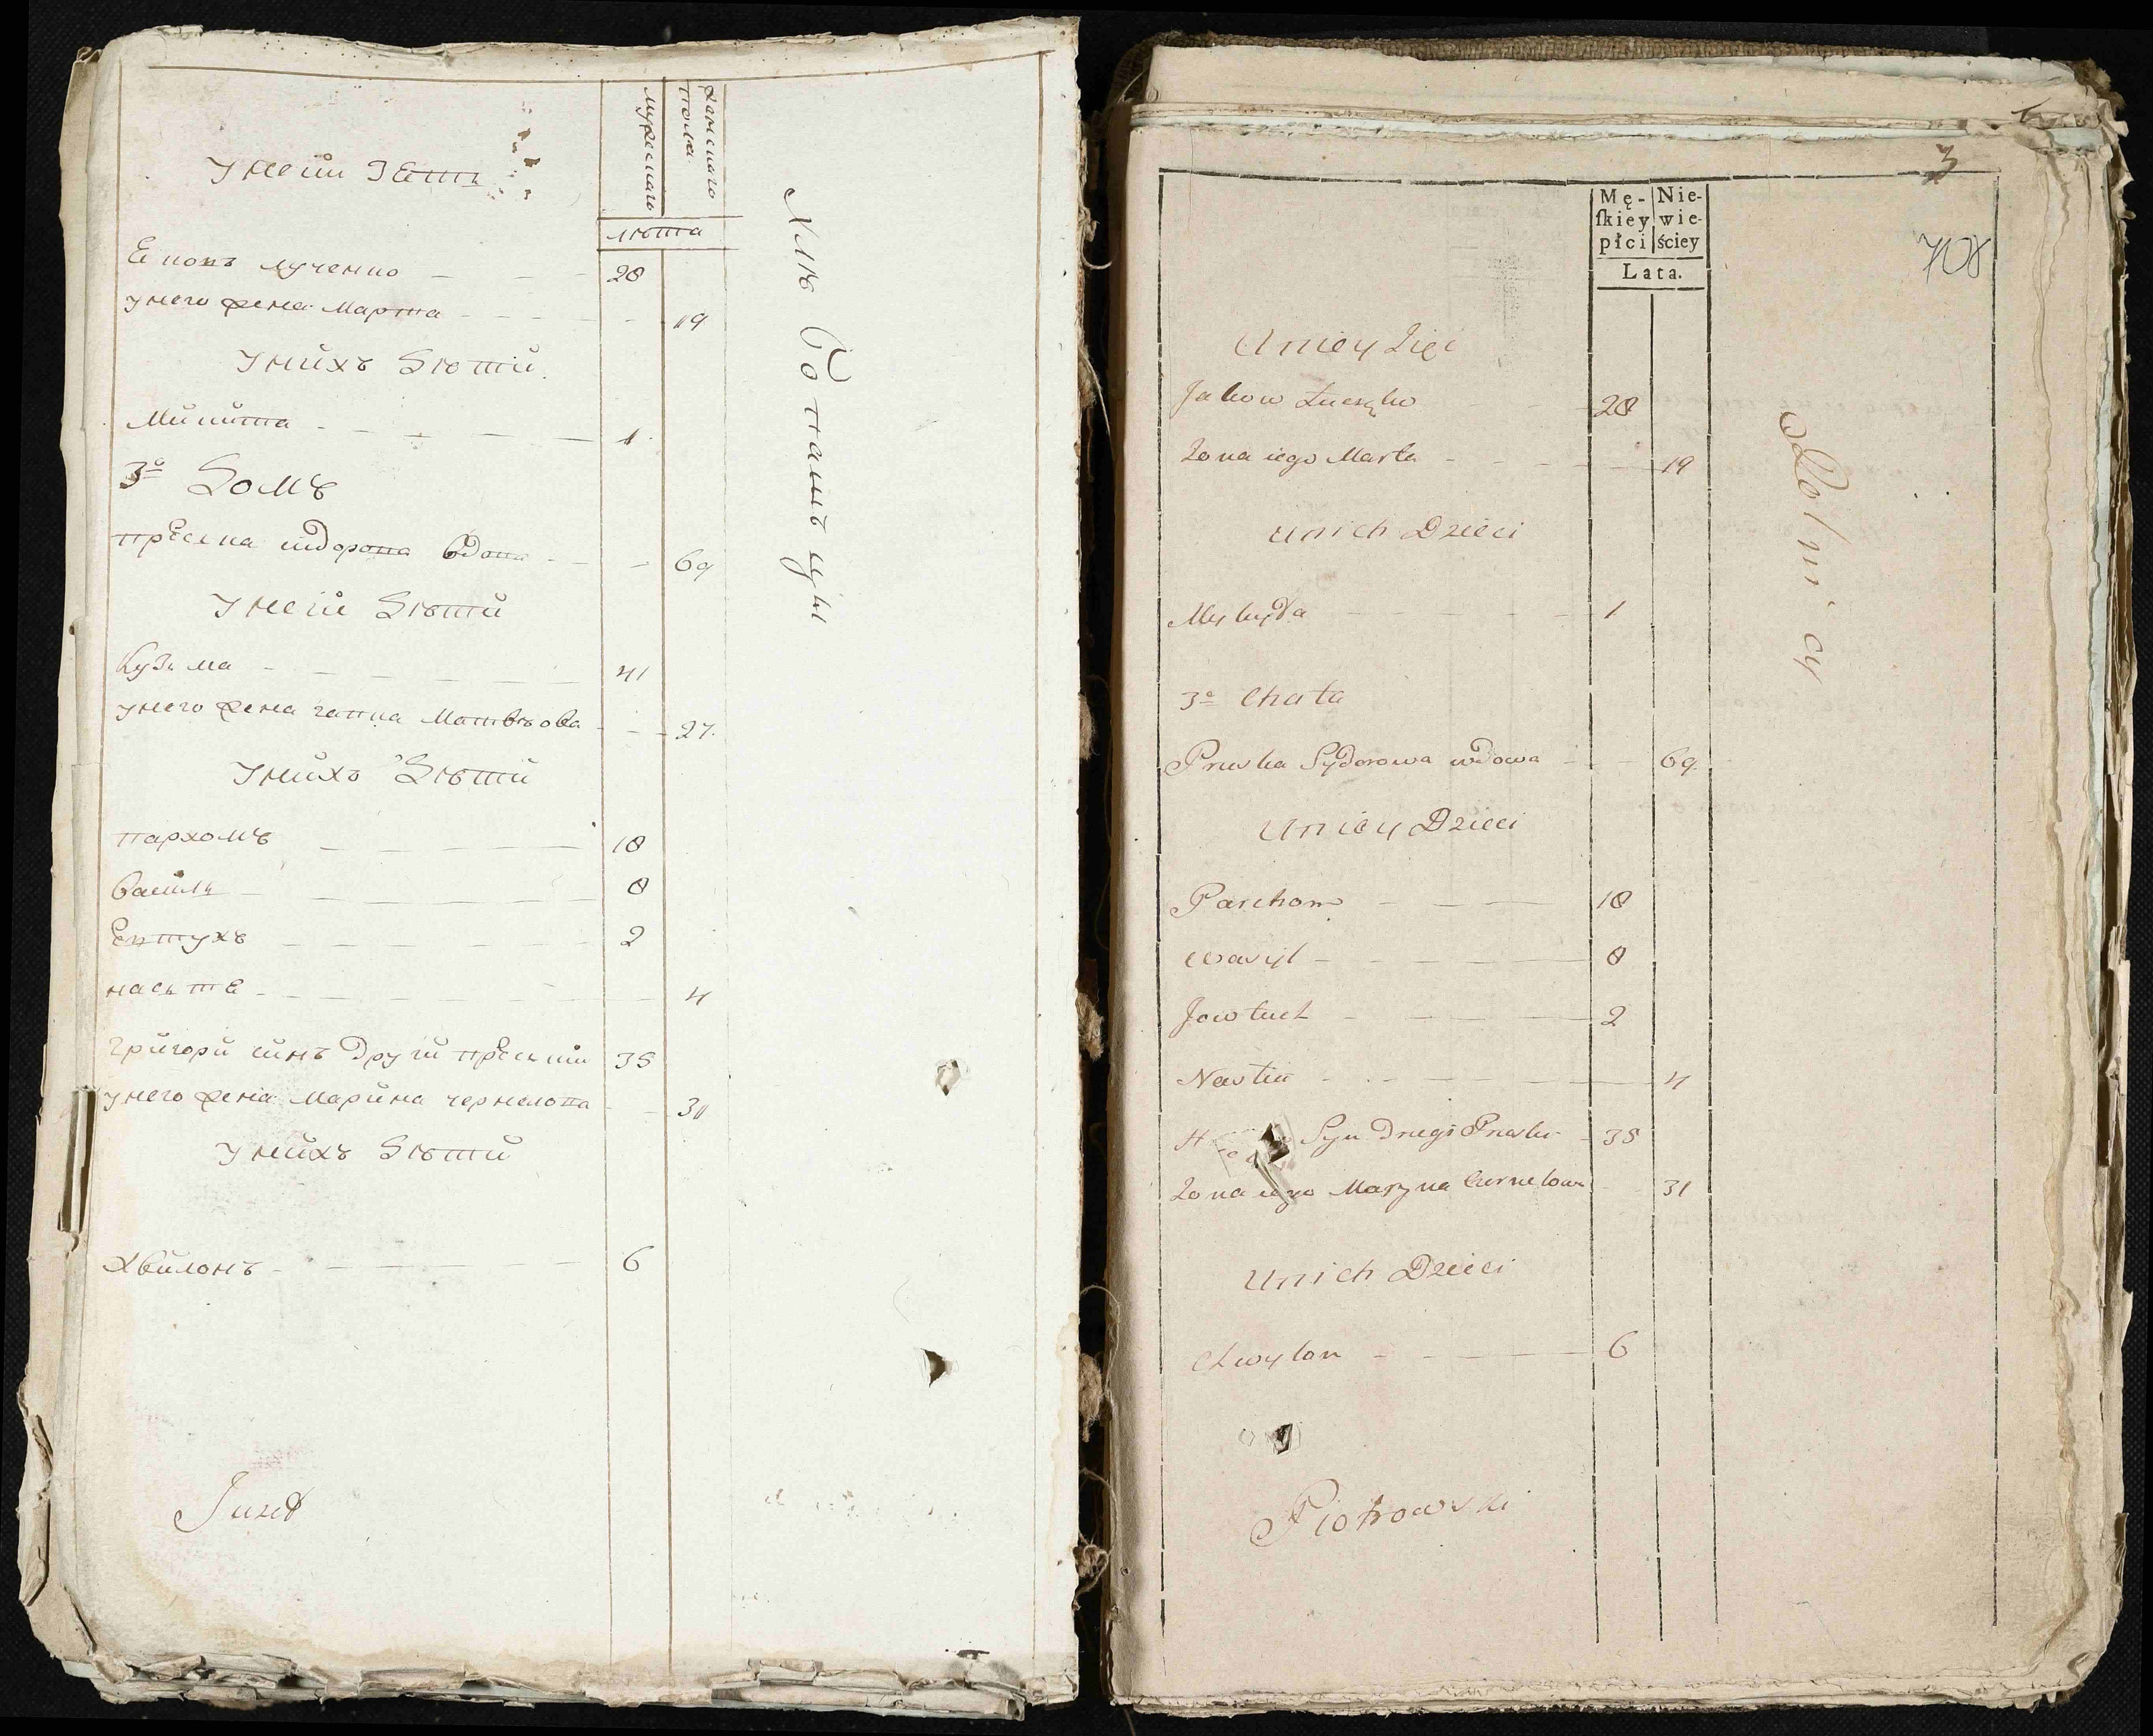 мужескаго
женскаго пола
лѣта
Унеии Зеть
Ековъ лученко 28
унего жена Марта 19
Унихъ Дѣти
Микита 1
3е Домъ
преска сидорова вдова 69
Унеии Дѣти
Кузьма 41
унего жена гапка Матвѣова 27
Унихъ Дѣти
пархомъ 18
василь 8
Евтухъ 2
насьте 4
григори синъ други преськи 35
унего жена Марина чернелова 31
Унихъ Дѣти
Хвилонъ 6
Jured
3
708
Mę-ſkiey płci
Nie-wie-ściey
Lata.
Uniey Zięć
Jakow Łuczęko 28
Zona iego Marta 19
Unich Dzieci
Mykyta 1
3e Chata
Pruska Sydorowa wdowa 69
Uniey Dzieci
Parchom 18
Wasyl 8
Jowtuch 2
Nastia 4
Syn Drugi Pruski 35
Zona iego Maryna Czernelowa 31
Unich Dzieci
Chwylon 6
Rolnicy
Piotrowski